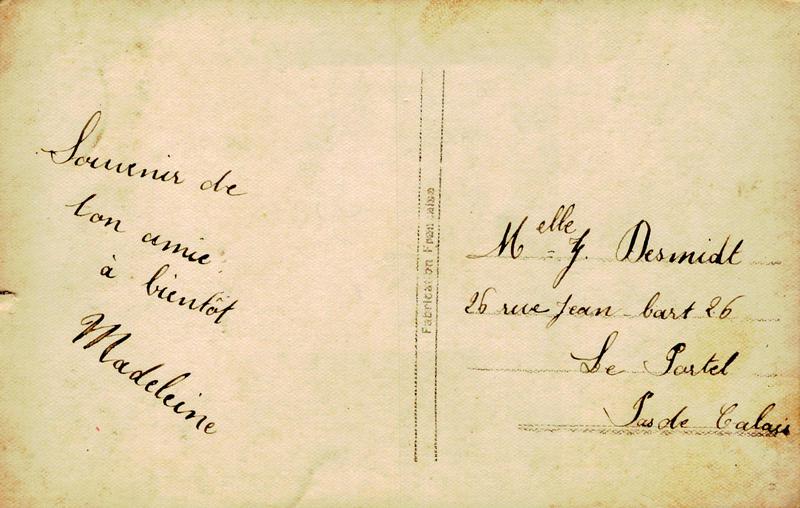 Souvenir de
ton amie
à bientôt
Madeleine
Fabrication Française
Melle J. Desmidt
26 rue Jean bart 26
Le Portel
Pas de Calais